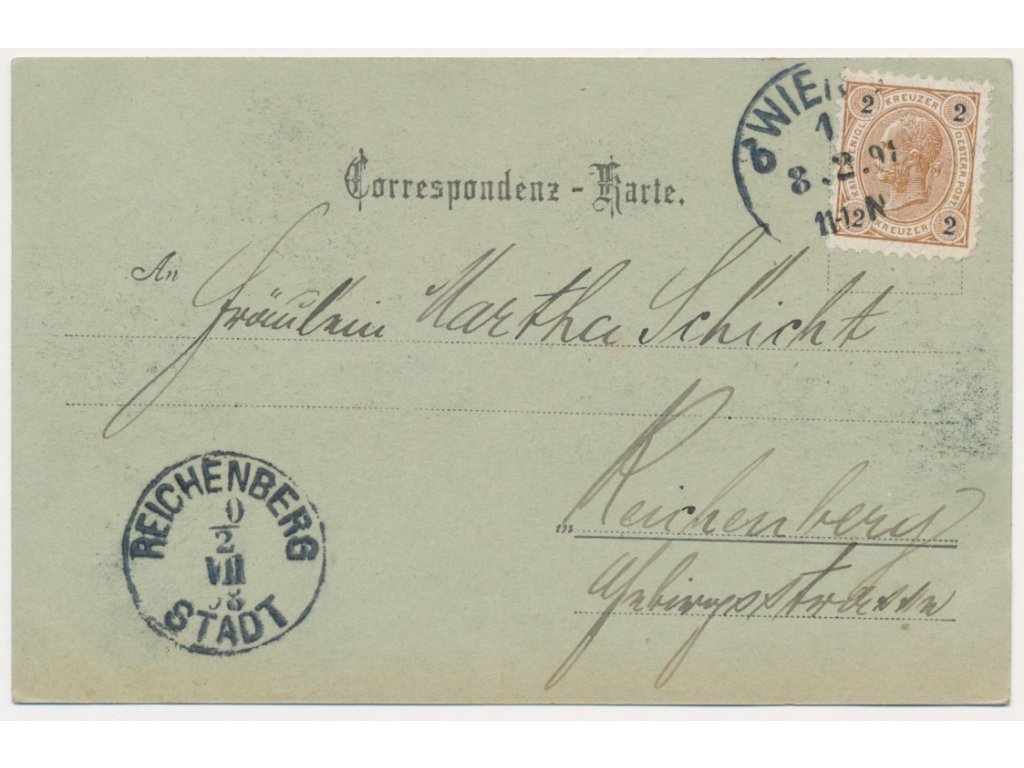 WIEN
1
8.2.97
11-12 N
2 KREUZER 2
KAIS. KÖNIGL. OESTERR. POST.
2 KREUZER 2
Correspondenz-Karte.
An Fräulein Martha Schicht
in Reichenberg
Gebirgsstrasse
REICHENBERG
2
VII
STADT